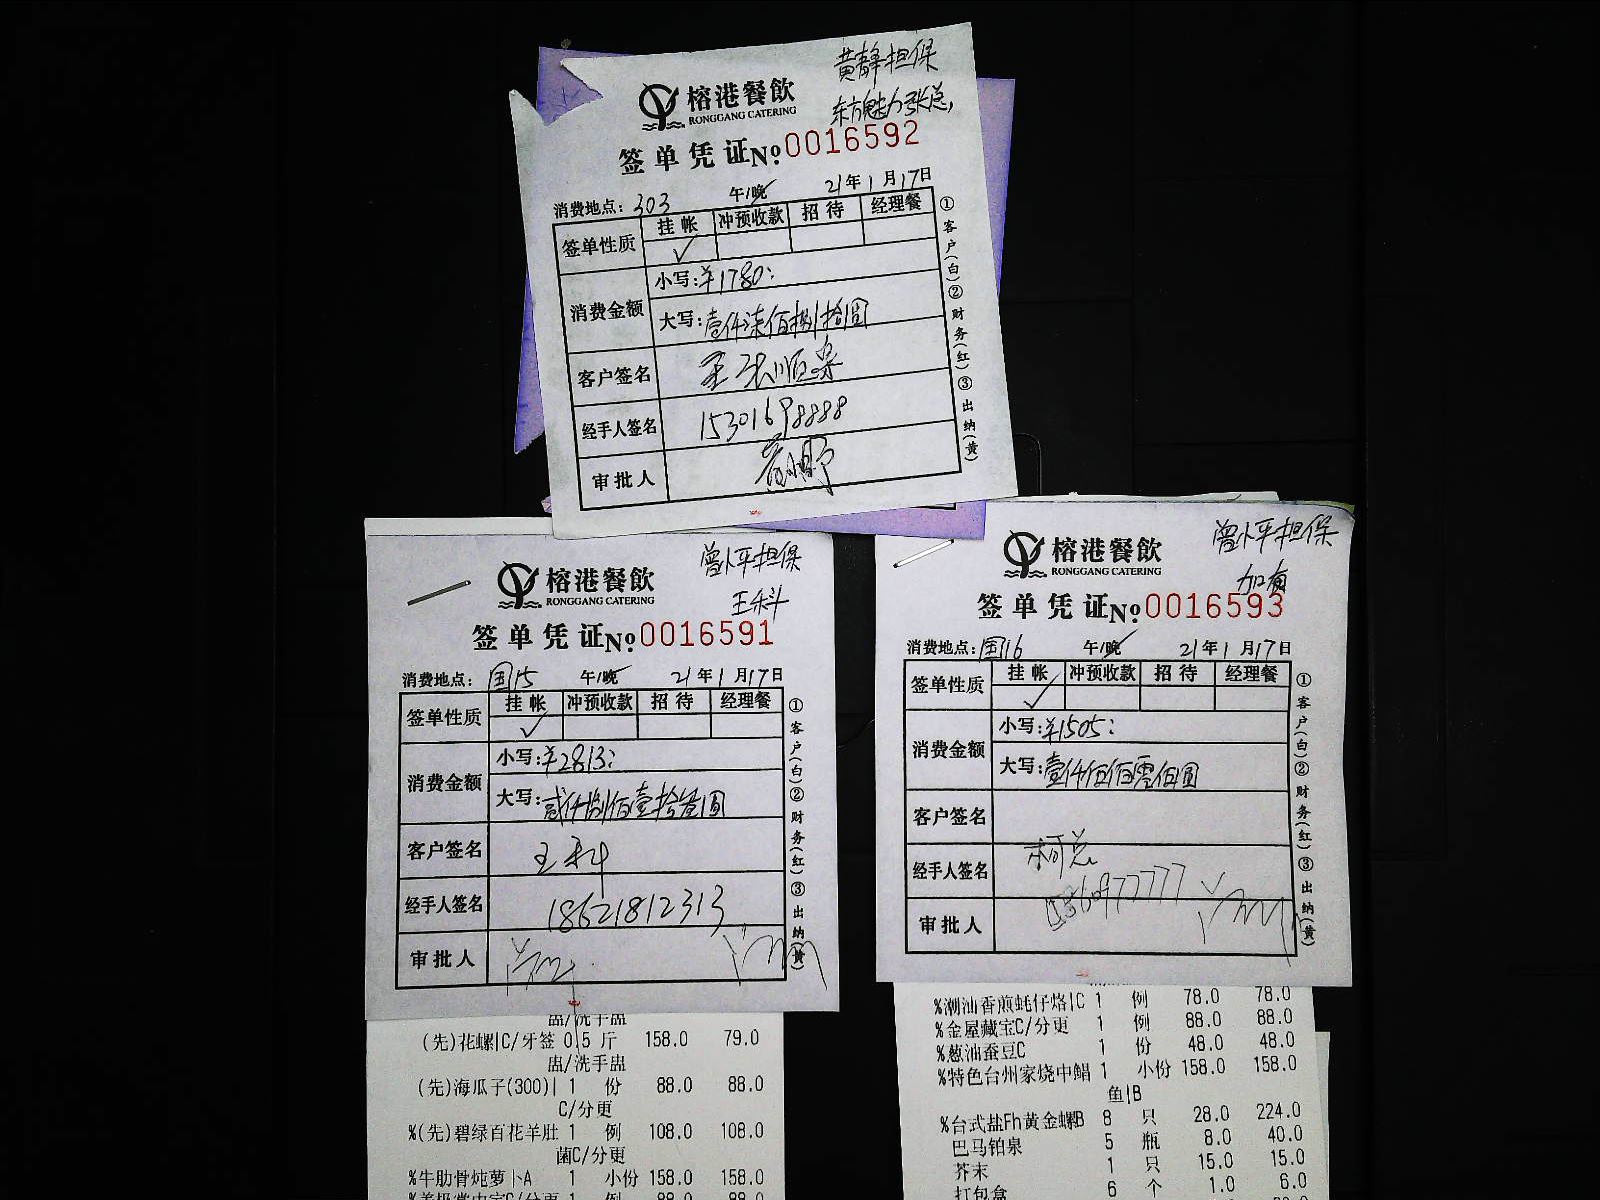 黄静担保
东方魅力张总,
榕港餐飲
RONGGANG CATERING
签单凭证№ 0016592
消费地点: 303 午/晚 21年1月17日
签单性质 挂帐 冲预收款 招待 经理餐
✓
消费金额 小写:¥1780:
大写:壹仟柒佰捌拾圆
客户签名
经手人签名 15301698888
审批人
①客户(白)②财务(红)③出纳(黄)
曾小平担保
王科
榕港餐飲
RONGGANG CATERING
签单凭证№ 0016591
消费地点: 国15 午/晚 21年1月17日
签单性质 挂帐 冲预收款 招待 经理餐
✓
消费金额 小写:¥2813:
大写:贰仟捌佰壹拾叁圆
客户签名 王科
经手人签名 18621812313
审批人
①客户(白)②财务(红)③出纳(黄)
盅/洗手盅
(先)花螺|C/牙签 0.5 斤 158.0 79.0
盅/洗手盅
(先)海瓜子(300)| 1 份 88.0 88.0
C/分更
%(先)碧绿百花羊肚 1 例 108.0 108.0
菌C/分更
%牛肋骨炖萝卜A 1 小份 158.0 158.0
曾小平担保
榕港餐飲
RONGGANG CATERING
签单凭证№ 0016593
消费地点: 国16 午/晚 21年1月17日
签单性质 挂帐 冲预收款 招待 经理餐
✓
消费金额 小写:¥1505:
大写:壹仟伍佰零伍圆
客户签名
经手人签名 柯总
审批人
①客户(白)②财务(红)③出纳(黄)
%潮汕香煎蚝仔烙|C 1 例 78.0 78.0
%金屋藏宝C/分更 1 例 88.0 88.0
%葱油蚕豆C 1 份 48.0 48.0
%特色台州家烧中鲳 1 小份 158.0 158.0
鱼|B
%台式盐Fh黄金螺B 8 只 28.0 224.0
巴马铂泉 5 瓶 8.0 40.0
芥末 1 只 15.0 15.0
打包盒 6 个 1.0 6.0